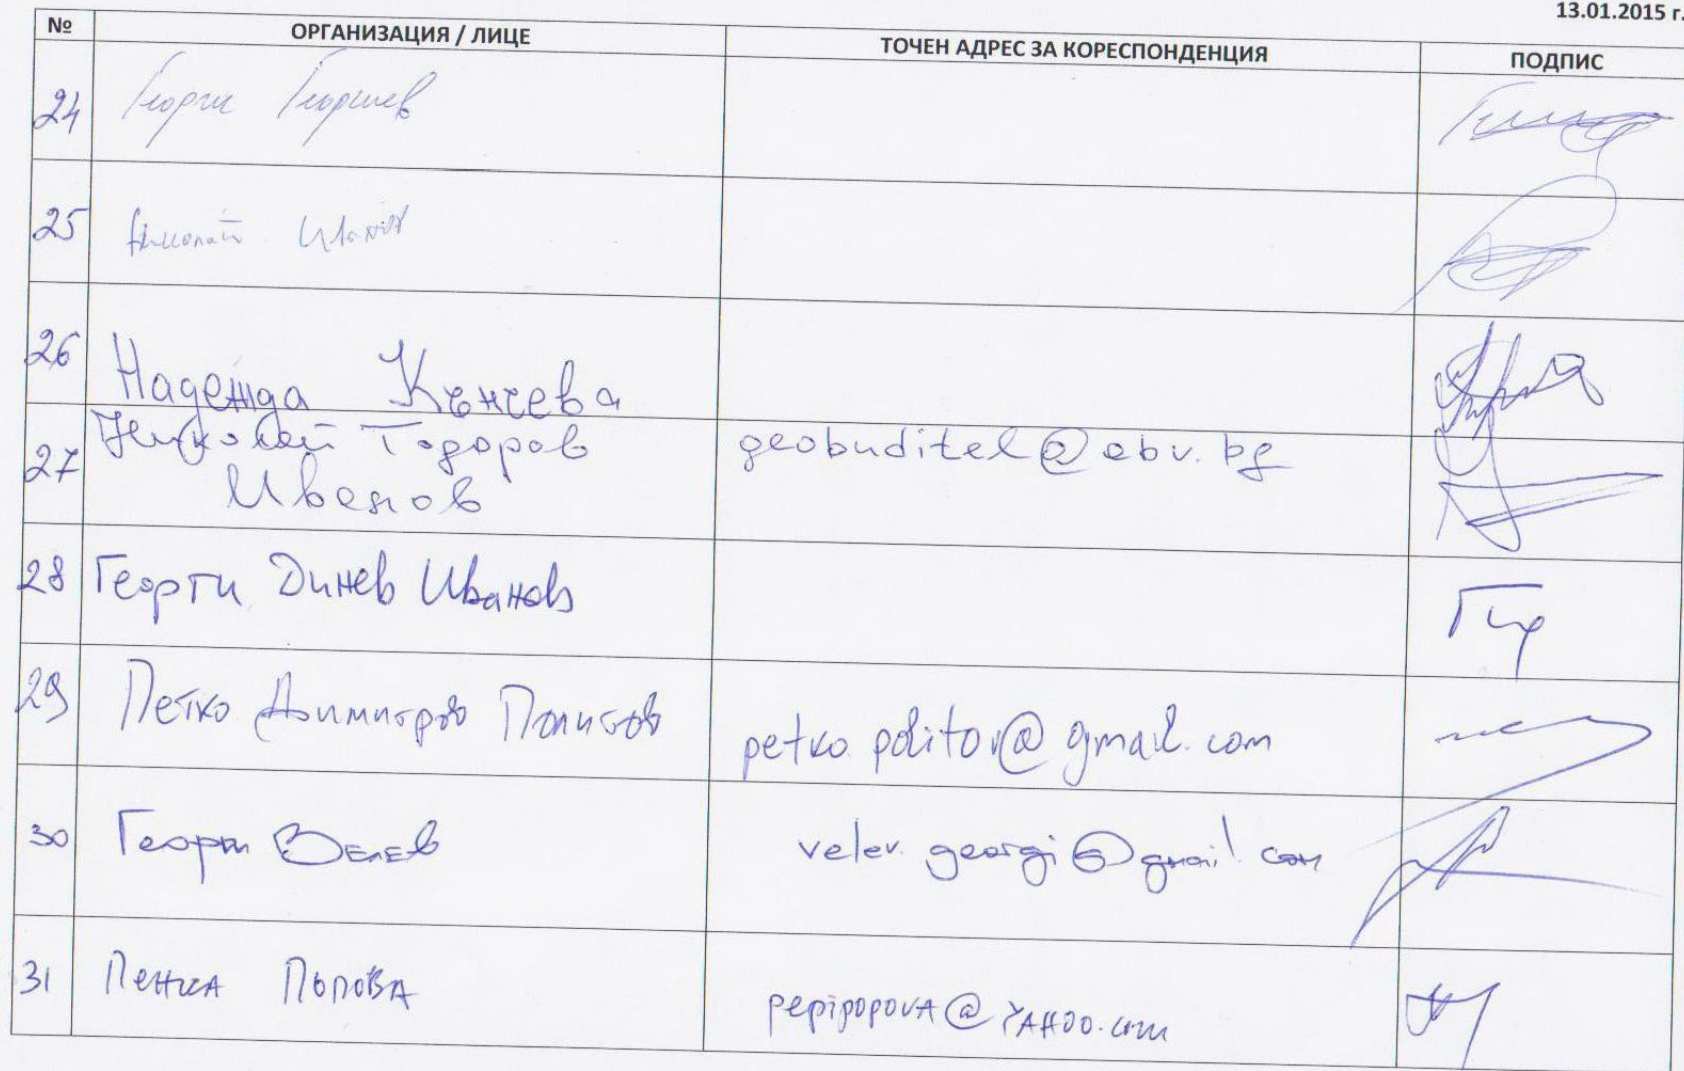 13.01.2015 г.
№ ОРГАНИЗАЦИЯ / ЛИЦЕ ТОЧЕН АДРЕС ЗА КОРЕСПОНДЕНЦИЯ ПОДПИС
24 Георги Георгиев
25 Николай Иванов
26 Надежда Кънчева
27 Николай Тодоров geobuditel@abv.bg
Иванов
28 Георги Динев Иванов
29 Петко Димитров Политов petko.politov@gmail.com
30 Георги Велев velev.georgi@gmail.com
31 Пенка Попова pepipopova@YAHOO.com